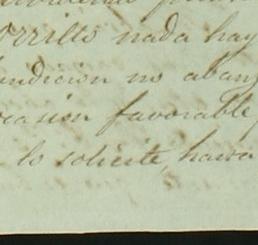 orrillo nada hay
ndición no aban
casión favorable,
lo solicite, hará